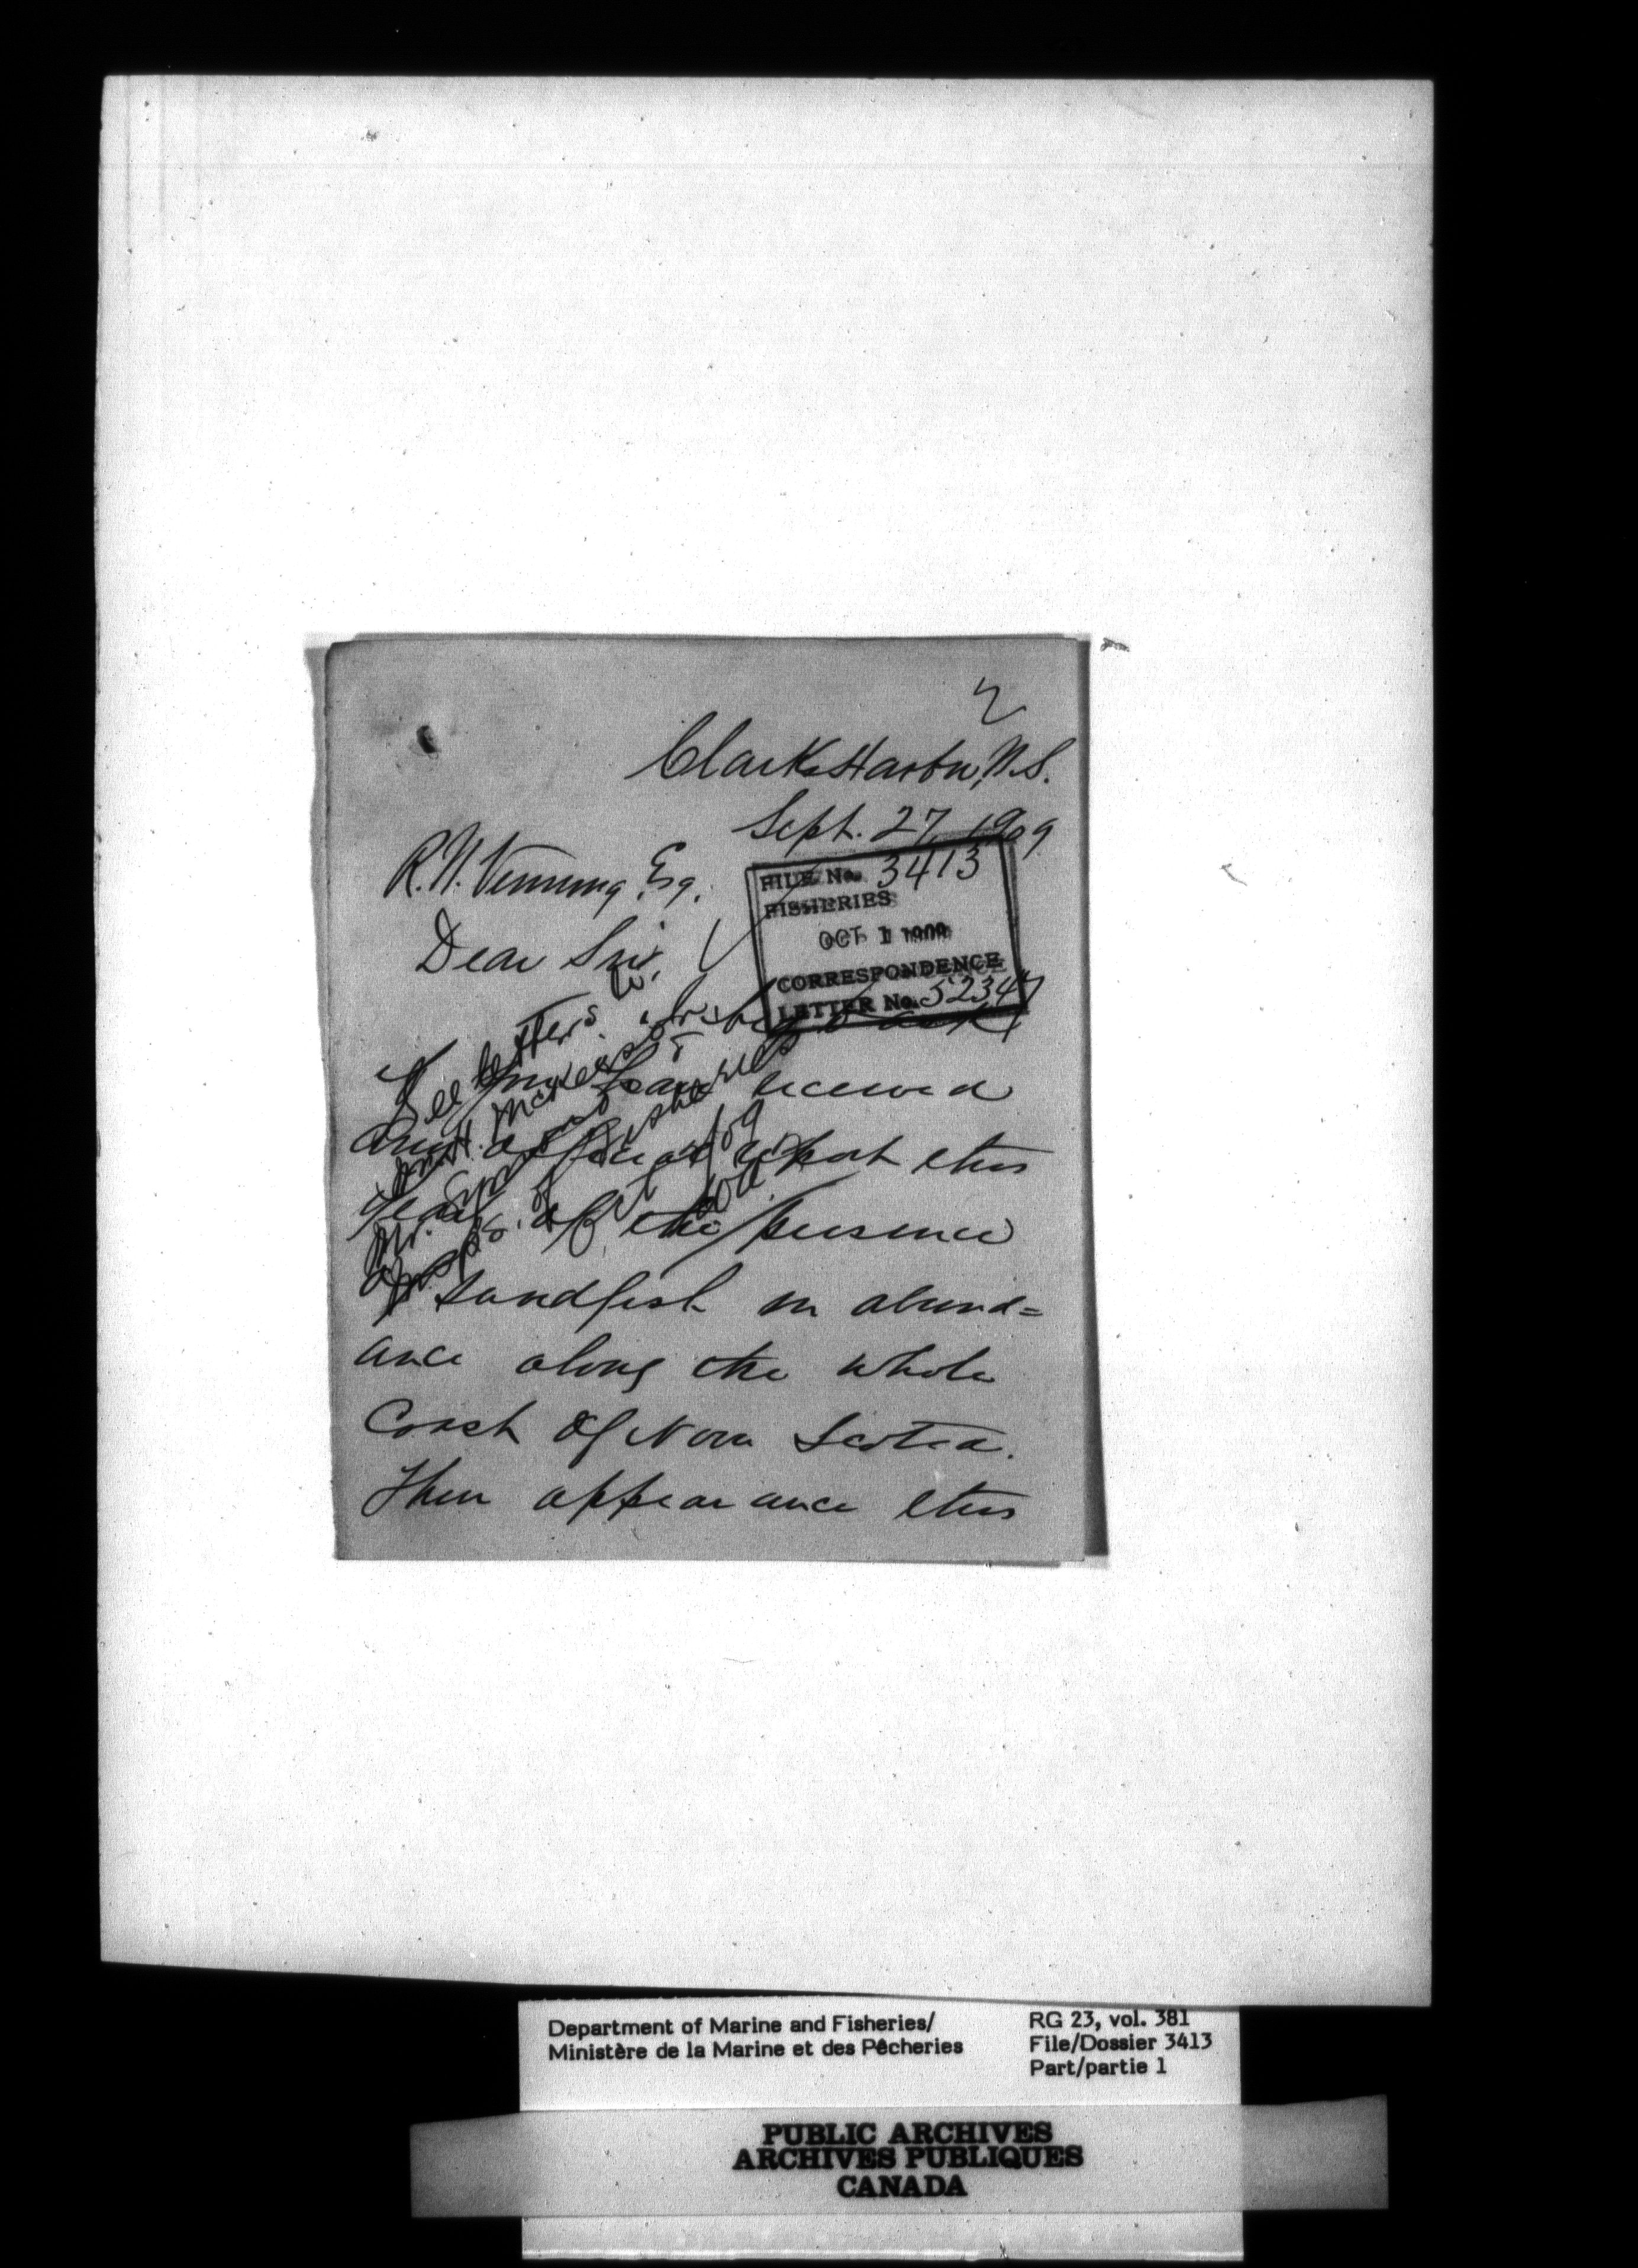 2
Clarks Harbor, N.S.
Sept. 27, 1909
R.N. Venning, Esq.
Dear Sir,
FILE No. 3413
FISHERIES
OCT 1 1909
CORRESPONDENCE
LETTER No. 52347
I wish to ask
if you have received
any official report this
year of the presence
of sandfish in abund=
ance along the whole
Coast of Nova Scotia.
Their appearance this
See letters to
and
Mr.
Insps. of Fisheries
Department of Marine and Fisheries/
Ministère de la Marine et des Pêcheries
RG 23, vol. 381
File/Dossier 3413
Part/partie 1
PUBLIC ARCHIVES
ARCHIVES PUBLIQUES
CANADA